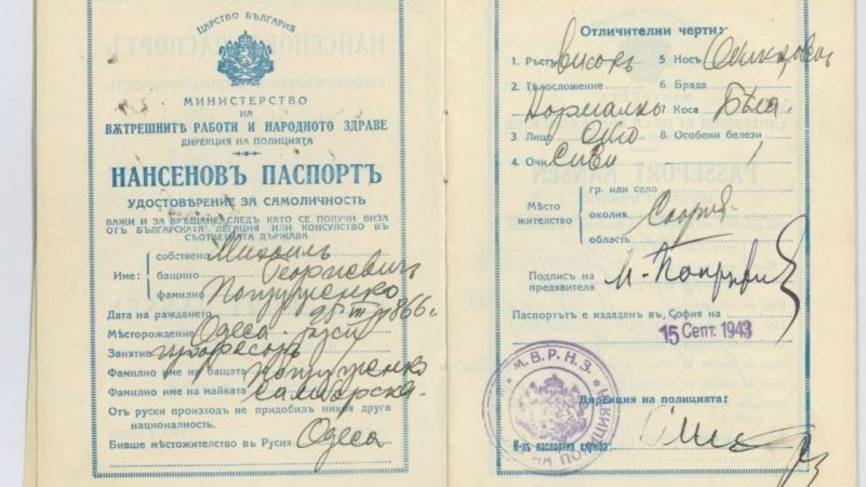 ЦАРСТВО БЪЛГАРИЯ
МИНИСТЕРСТВО
НА
ВѪТРЕШНИТѢ РАБОТИ И НАРОДНОТО ЗДРАВЕ
ДИРЕКЦИЯ НА ПОЛИЦИЯТА
НАНСЕНОВЪ ПАСПОРТЪ
УДОСТОВѢРЕНИЕ ЗА САМОЛИЧНОСТЬ
ВАЖИ И ЗА ВРѢЩАНЕ СЛЕДЪ КАТО СЕ ПОЛУЧИ ВИЗА
ОТЪ БЪЛГАРСКАТА ЛЕГАЦИЯ ИЛИ КОНСУЛСТВО ВЪ
СЪОТВЕТНАТА ДЪРЖАВА
Име: собствено Михаилъ
бащино Георгиевичъ
фамилно Попруженко
Дата на раждането 25 1866 г.
Месторождение Одеса - Русия
Занятие професоръ
Фамилно име на бащата Попруженко
Фамилно име на майката
Отъ руски произходъ не придобилъ никоя друга
националность.
Бивше мѣстожителство въ Русия Одеса
Отличителни черти:
1. Ръстъ високъ 5 Носъ
2. Тѣлосложение 6. Брада
Нормално 7. Коса Бѣла.
3. Лице 8. Особени белези
4. Очи Сиви
Място жителство
гр. или село
околия София
область
Подпись на предявителя М. Попруженко
Паспортътъ е издаденъ въ, София на
15 Септ. 1943
М.В.Р.Н.З.
Дирекция на полицията:
Н-къ паспортна служба: